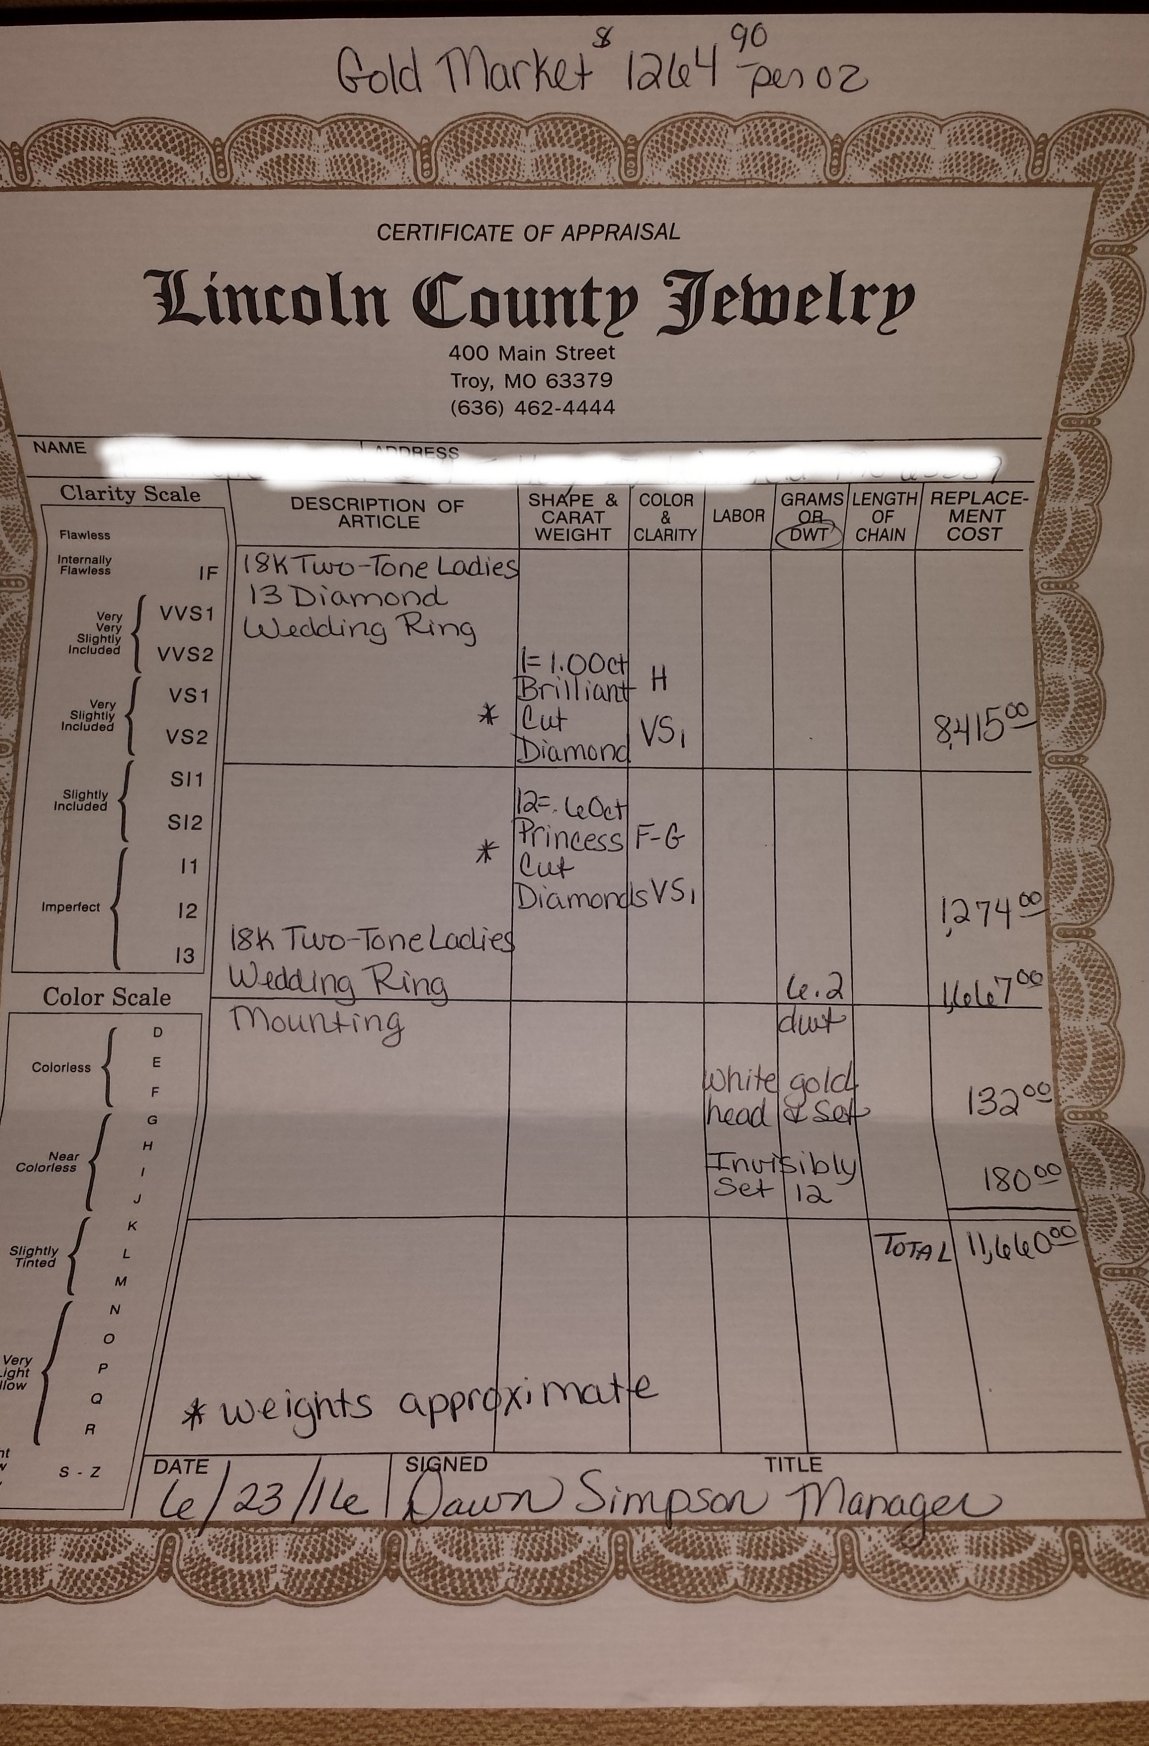 Gold Market $1264 90 per oz
CERTIFICATE OF APPRAISAL
Lincoln County Jewelry
400 Main Street
Troy, MO 63379
(636) 462-4444
NAME ADDRESS
Clarity Scale
Flawless
Internally
Flawless IF
Very
Very
Slightly
Included
VVS1
VVS2
Very
Slightly
Included
VS1
VS2
Slightly
Included
SI1
SI2
Imperfect
I1
I2
I3
Color Scale
Colorless
D
E
F
Near
Colorless
G
H
I
J
Slightly
Tinted
K
L
M
Very
N
O
P
Q
R
S - Z
DESCRIPTION OF
ARTICLE
SHAPE &
CARAT
WEIGHT
COLOR
&
CLARITY
LABOR
GRAMS
OR
DWT
LENGTH
OF
CHAIN
REPLACE-
MENT
COST
18K Two-Tone Ladies
13 Diamond
Wedding Ring
1= 1.00ct
Brilliant
* Cut
Diamond
H
VS1
8,415 00
12= .60ct
Princess
* Cut
Diamonds
F-G
VS1
1,274 00
18K Two-Tone Ladies
Wedding Ring
Mounting
6.2
dwt
1,667 00
white gold
head & set
132 00
Invisibly
Set 12
180 00
TOTAL 11,660 00
* weights approximate
DATE SIGNED TITLE
6/23/16 Dawn Simpson Manager